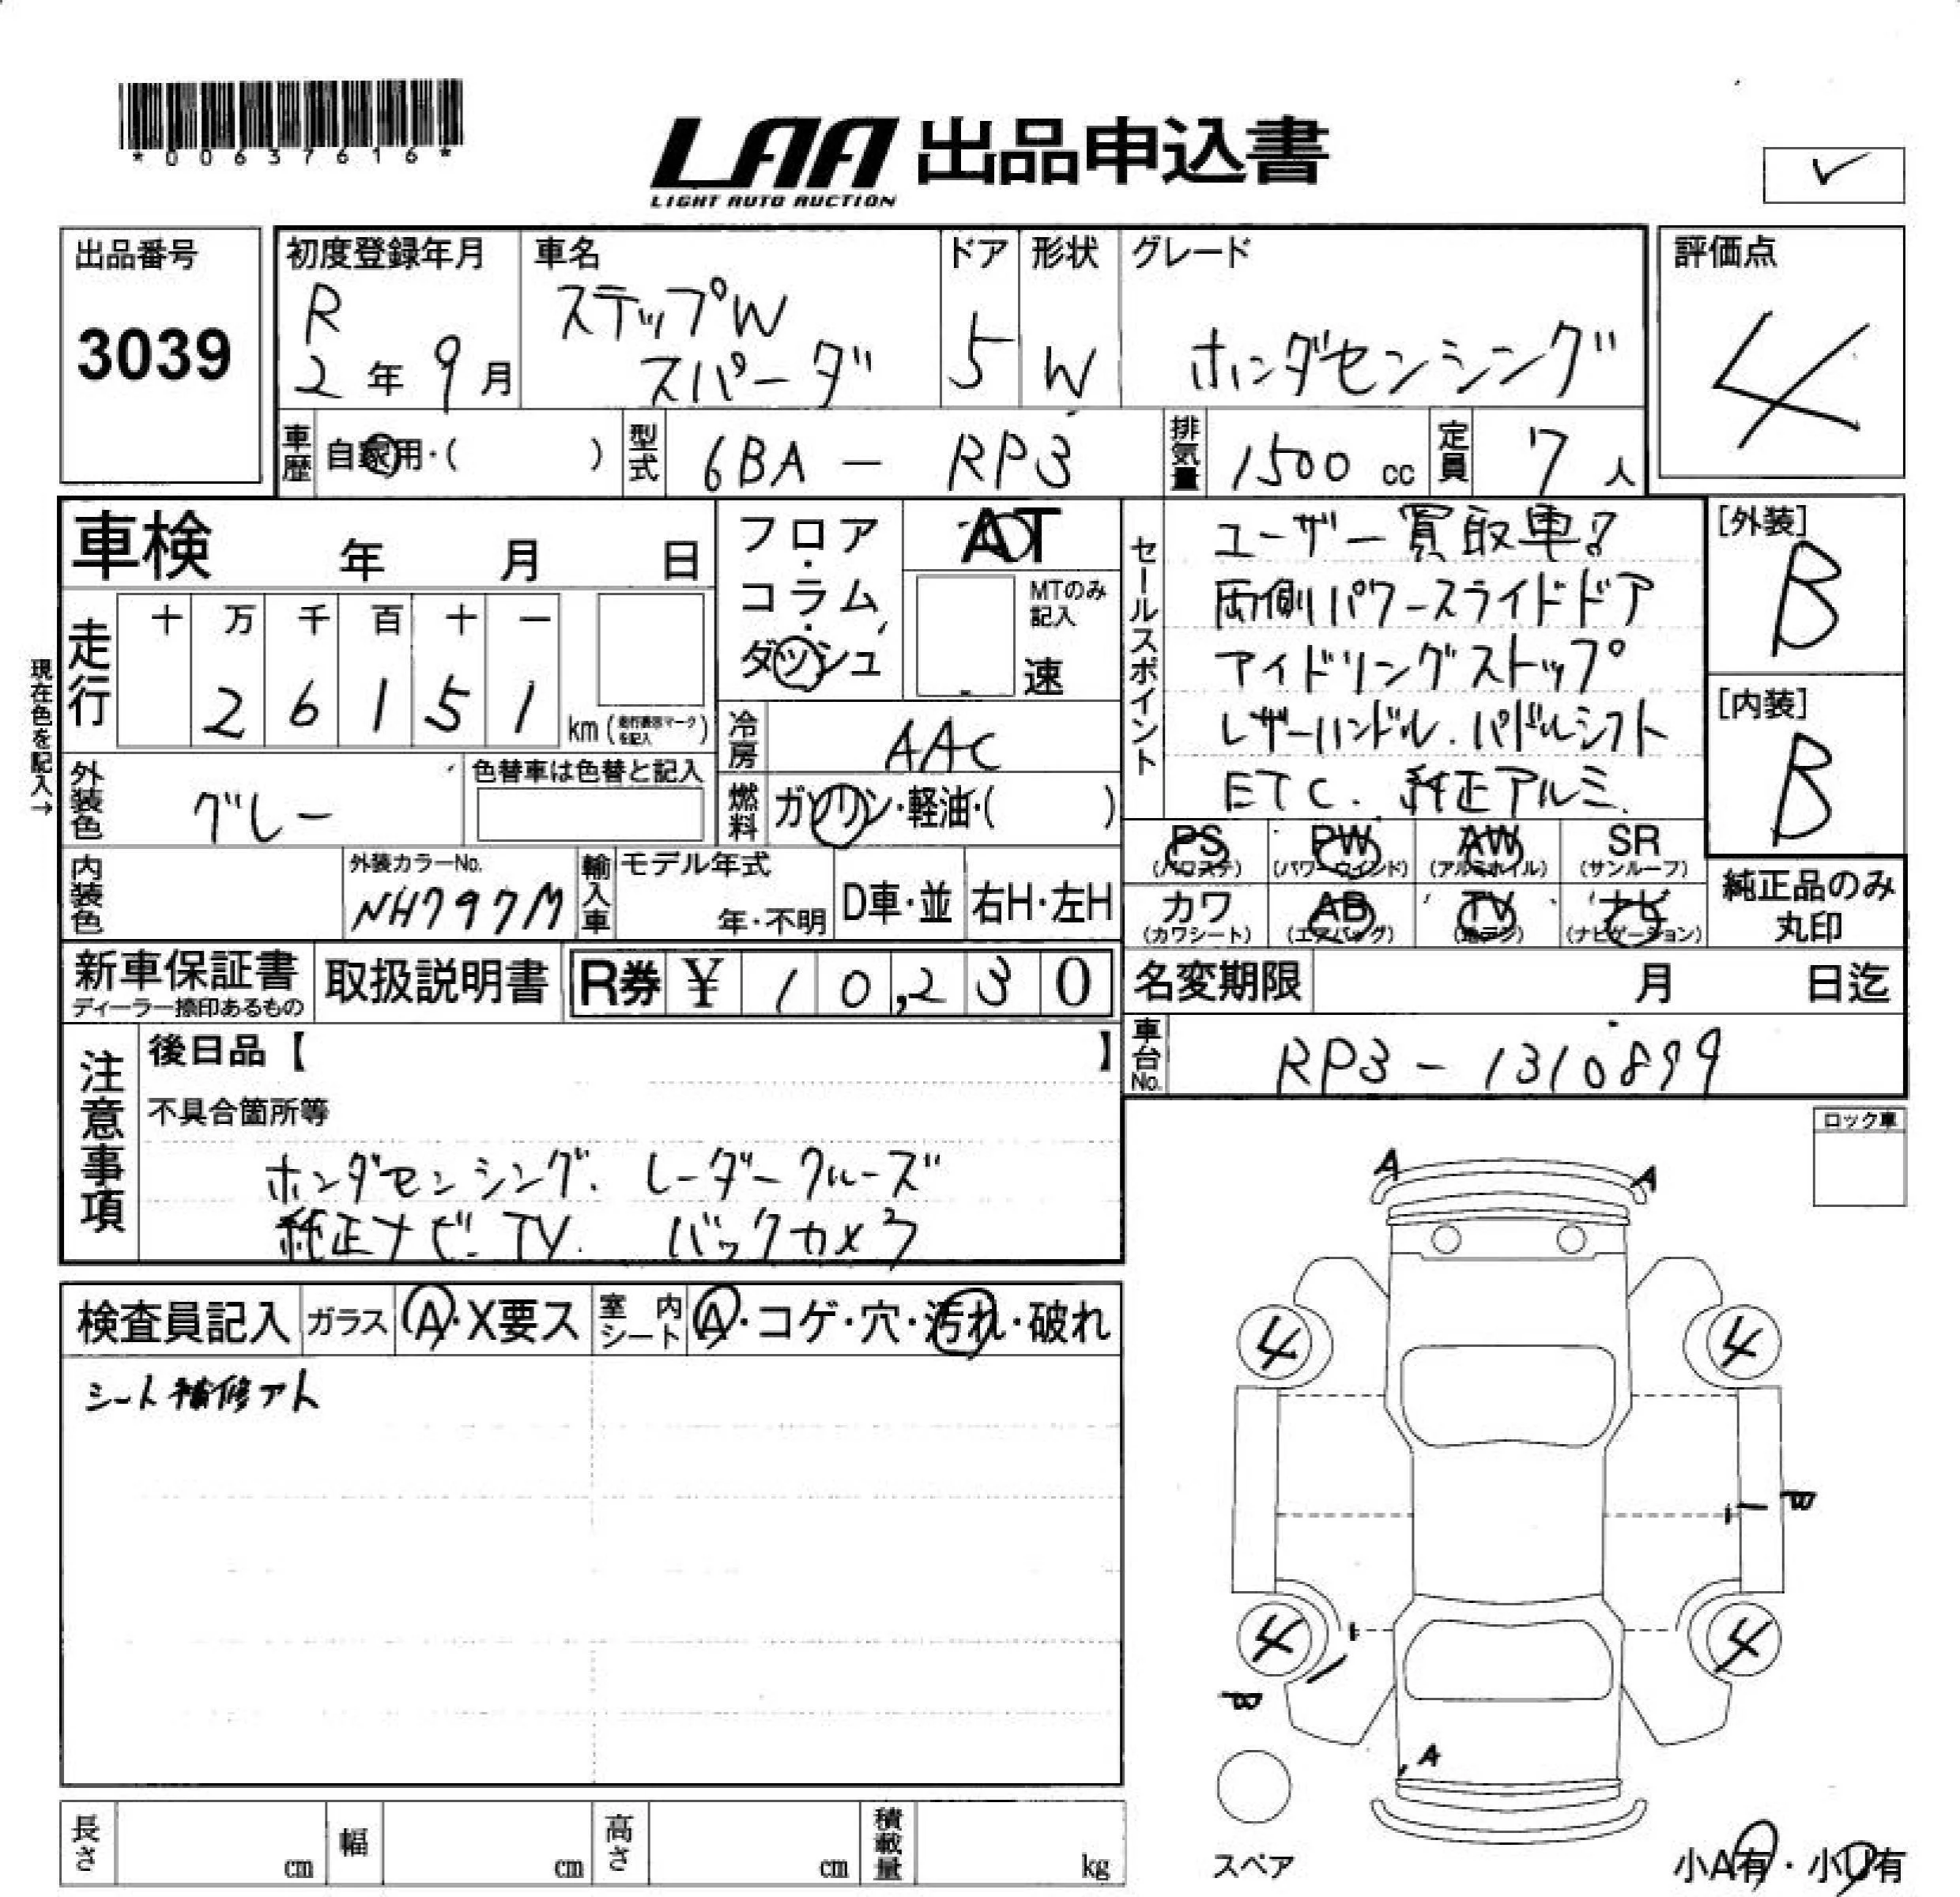 *00637616*
LAA 出品申込書
LIGHT AUTO AUCTION
✓
出品番号
3039
初度登録年月
R
2年9月
車名
ステップW
スパーダ
ドア
5
形状
W
グレード
ホンダセンシング
評価点
4
車歴
自家用・( )
型式
6BA - RP3
排気量
1500 cc
定員
7人
車検 年 月 日
フロア・コラム・ダッシュ
AT
MTのみ記入
速
セールスポイント
ユーザー買取車!
両側パワースライドドア
アイドリングストップ
レザーハンドル.パドルシフト
ETC. 純正アルミ.
[外装]
B
[内装]
B
現在色を記入→
走行
十 万 千 百 十 一
2 6 1 5 1
km (走行表示マークを記入)
冷房
AAC
外装色
グレー
色替車は色替と記入
燃料
ガソリン・軽油・( )
PS (パワステ)
PW (パワーウインド)
AW (アルミホイル)
SR (サンルーフ)
カワ (カワシート)
AB (エアバッグ)
TV (地デジ)
ナビ (ナビゲーション)
純正品のみ
丸印
内装色
外装カラーNo.
NH797M
輸入車
モデル年式
年・不明
D車・並
右H・左H
新車保証書
ディーラー捺印あるもの
取扱説明書
R券 ¥ 10,230
名変期限 月 日迄
車台No.
RP3 - 1310899
注意事項
後日品【 】
不具合箇所等
ホンダセンシング. レーダークルーズ
純正ナビ. TV. バックカメラ
ロック車
検査員記入
ガラス
A・X要ス
室内シート
A・コゲ・穴・汚れ・破れ
シート補修アト
A
A
4
4
B
4
4
B
A
スペア
小A有・小U有
長さ cm
幅 cm
高さ cm
積載量 kg